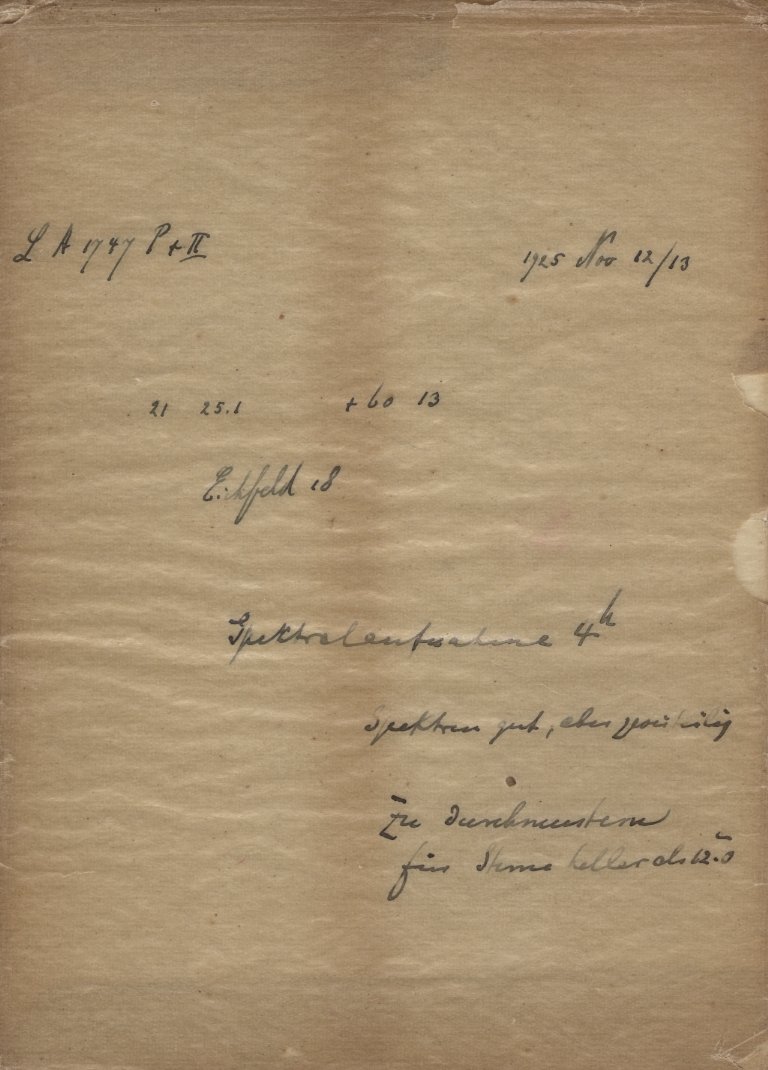 L A 1747 P + II 1925 Nov 12/13
21 25.1 + 60 13
Eichfeld 18
Spektralaufnahme 4h
Spektren gut, aber
Zu durchmustern
für Sterne heller als 12.0